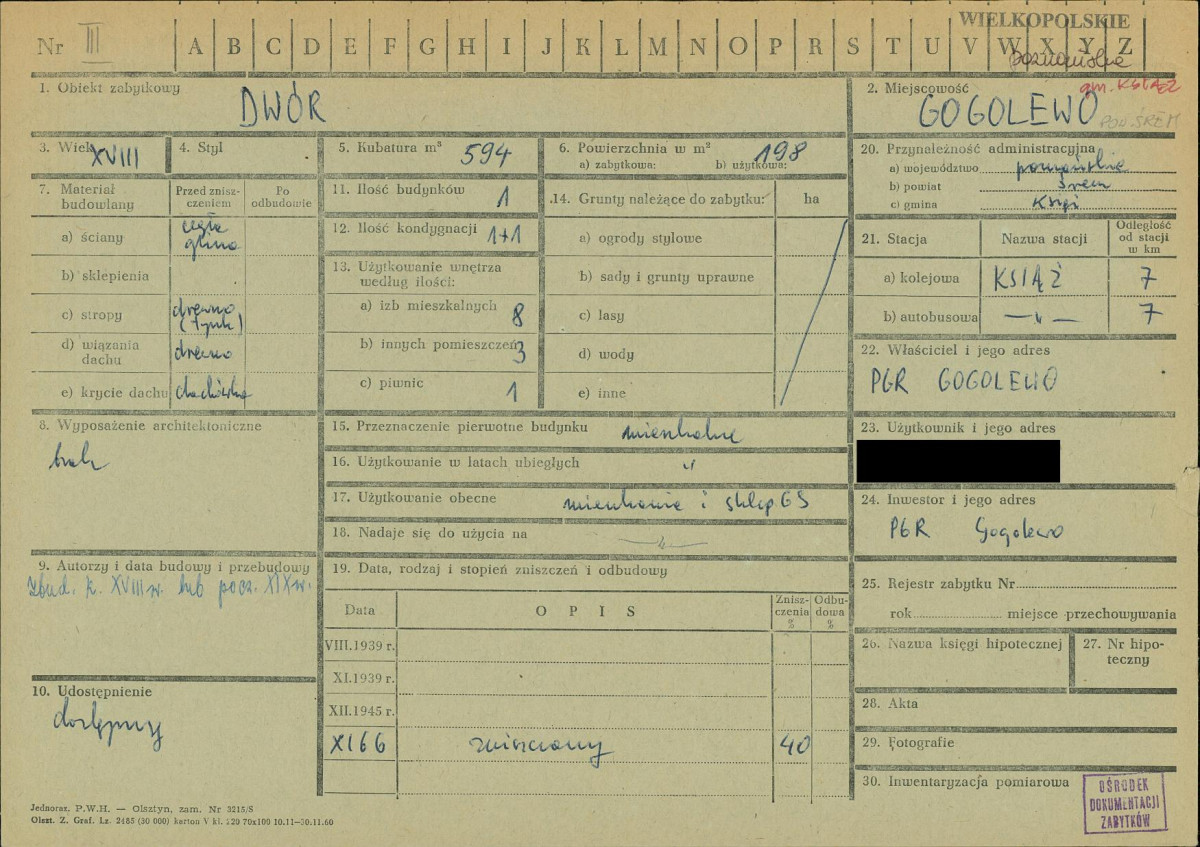 WIELKOPOLSKIE
Nr III A B C D E F G H I J K L M N O P R S T U V W X Y Z
poznańskie
1. Obiekt zabytkowy
DWÓR
2. Miejscowość
gm. KSIĄŻ
GOGOLEWO
POW. ŚREM
3. Wiek XVIII
4. Styl
5. Kubatura m³ 594
6. Powierzchnia w m²
a) zabytkowa: b) użytkowa: 198
20. Przynależność administracyjna
a) województwo poznańskie
b) powiat Śrem
c) gmina Książ
7. Materiał budowlany
Przed znisz-
czeniem
Po
odbudowie
a) ściany cegła
glina
b) sklepienia
c) stropy drewno
(tynk)
d) wiązania
dachu drewno
e) krycie dachu dachówka
11. Ilość budynków 1
12. Ilość kondygnacji 1+1
13. Użytkowanie wnętrza
według ilości:
a) izb mieszkalnych 8
b) innych pomieszczeń 3
c) piwnic 1
14. Grunty należące do zabytku: ha
a) ogrody stylowe
b) sady i grunty uprawne
c) lasy
d) wody
e) inne
21. Stacja Nazwa stacji
Odległość
od stacji
w km
a) kolejowa KSIĄŻ 7
b) autobusowa —„— 7
22. Właściciel i jego adres
PGR GOGOLEWO
8. Wyposażenie architektoniczne
brak
15. Przeznaczenie pierwotne budynku mieszkalne
16. Użytkowanie w latach ubiegłych „
17. Użytkowanie obecne mieszkanie i sklep GS
18. Nadaje się do użycia na —„—
23. Użytkownik i jego adres
24. Inwestor i jego adres
PGR Gogolewo
9. Autorzy i data budowy i przebudowy
Zbud. k. XVIII w. lub pocz. XIX w.
19. Data, rodzaj i stopień zniszczeń i odbudowy
Data OPIS
Znisz-
czenia
%
Odbu-
dowa
%
VIII.1939 r.
XI.1939 r.
XII.1945 r.
XI 66 zniszczony 40
25. Rejestr zabytku Nr
rok miejsce przechowywania
26. Nazwa księgi hipotecznej
27. Nr hipo-
teczny
28. Akta
29. Fotografie
30. Inwentaryzacja pomiarowa
10. Udostępnienie
dostępny
OŚRODEK
DOKUMENTACJI
ZABYTKÓW
Jednoraz. P.W.H. — Olsztyn, zam. Nr 3215/S
Olszt. Z. Graf. Lz. 2485 (30 000) karton V kl. 220 70x100 10.11—30.11.60